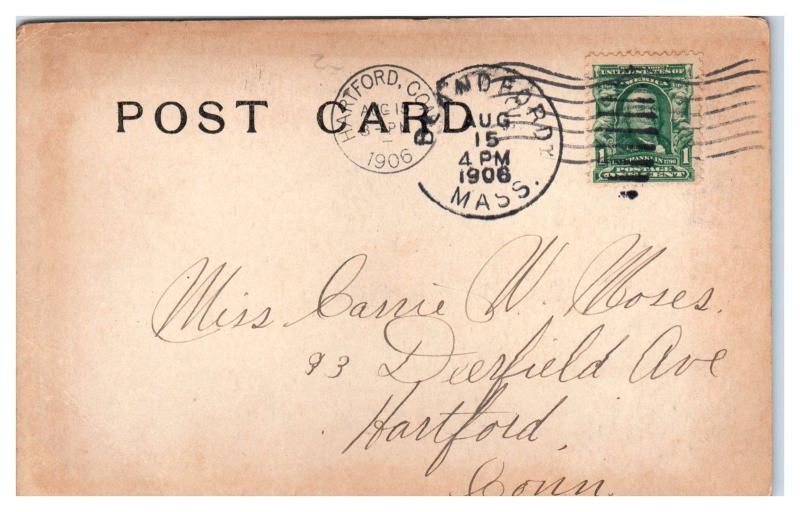 POST CARD
HARTFORD, CONN.
AUG 15
PM
1906
BLANDFORD
AUG
15
4 PM
1906
MASS.
UNITED STATES OF
AMERICA
1 FRANKLIN 1790 1
POSTAGE
ONE CENT
Miss Carrie W. Moses.
93 Deerfield Ave
Hartford,
Conn.